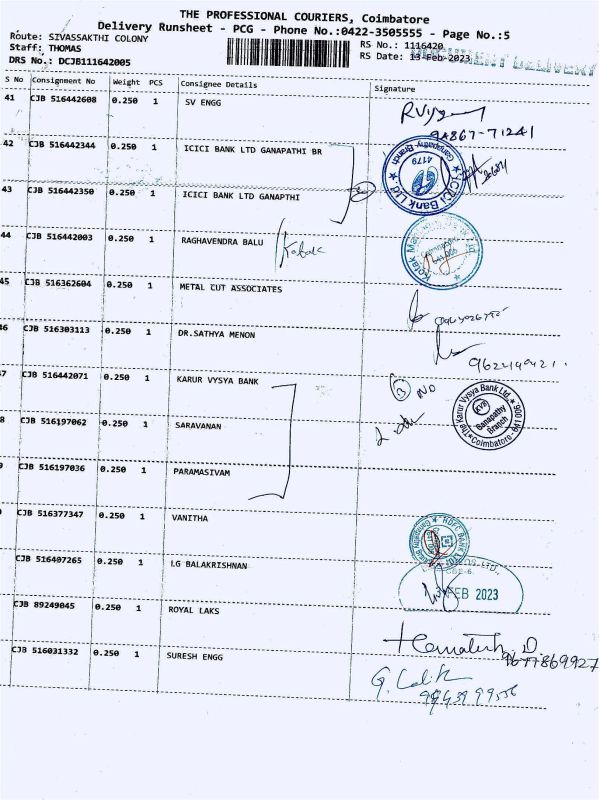 THE PROFESSIONAL COURIERS, Coimbatore
Delivery Runsheet - PCG - Phone No.:0422-3505555 - Page No.:5
Route: SIVASSAKTHI COLONY
RS No.: 1116420
Staff: THOMAS
RS Date: 13-Feb-2023
DRS No.: DCJB111642005
S No Consignment No Weight PCS Consignee Details Signature
41 CJB 516442608 0.250 1 SV ENGG
98867-71241
42 CJB 516442344 0.250 1 ICICI BANK LTD GANAPATHI BR
ICICI Bank Ltd Ganapathy Branch 4179
43 CJB 516442350 0.250 1 ICICI BANK LTD GANAPTHI
44 CJB 516442003 0.250 1 RAGHAVENDRA BALU Kotak
45 CJB 516362604 0.250 1 METAL CUT ASSOCIATES
46 CJB 516303113 0.250 1 DR.SATHYA MENON
47 CJB 516442071 0.250 1 KARUR VYSYA BANK
3 NO
The Karur Vysya Bank Ltd. KVB Ganapathy Branch Coimbatore - 641 006
8 CJB 516197062 0.250 1 SARAVANAN
CJB 516197036 0.250 1 PARAMASIVAM
CJB 516377347 0.250 1 VANITHA
HDFC Bank
CJB 516407265 0.250 1 LG BALAKRISHNAN
FEB 2023
CJB 89249045 0.250 1 ROYAL LAKS
9677869927
CJB 516031332 0.250 1 SURESH ENGG